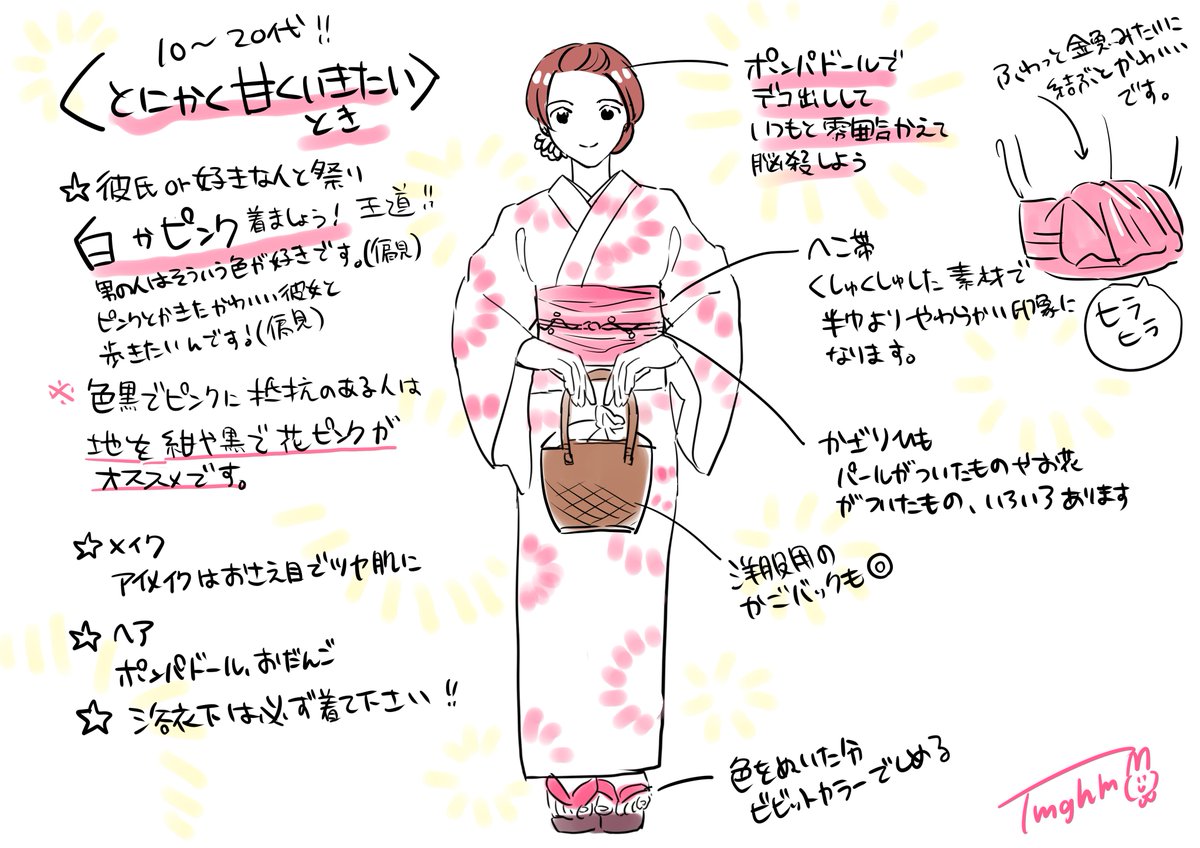 10〜20代!!
〈とにかく甘くいきたい〉
とき
☆彼氏or好きな人と祭り
白かピンク着ましょう! 王道!!
男の人はそういう色が好きです。(偏見)
ピンクとかきたかわいい彼女と
歩きたいんです!(偏見)
※色黒でピンクに抵抗のある人は
地を紺や黒で花ピンクが
オススメです。
☆メイク
アイメイクはおさえ目でツヤ肌に
☆ヘア
ポンパドール、おだんご
☆浴衣下は必ず着て下さい!!
ポンパドールで
デコ出しして
いつもと雰囲気かえて
脳殺しよう
ふわっと金魚みたいに
結ぶとかわいい
です。
ヒラ
ヒラ
へこ帯
くしゅくしゅした素材で
半巾よりやわらかい印象に
なります。
かざりひも
パールがついたものやお花
がついたもの、いろいろあります
洋服用の
かごバックも◎
色をぬいた分
ビビットカラーでしめる
Tmghm